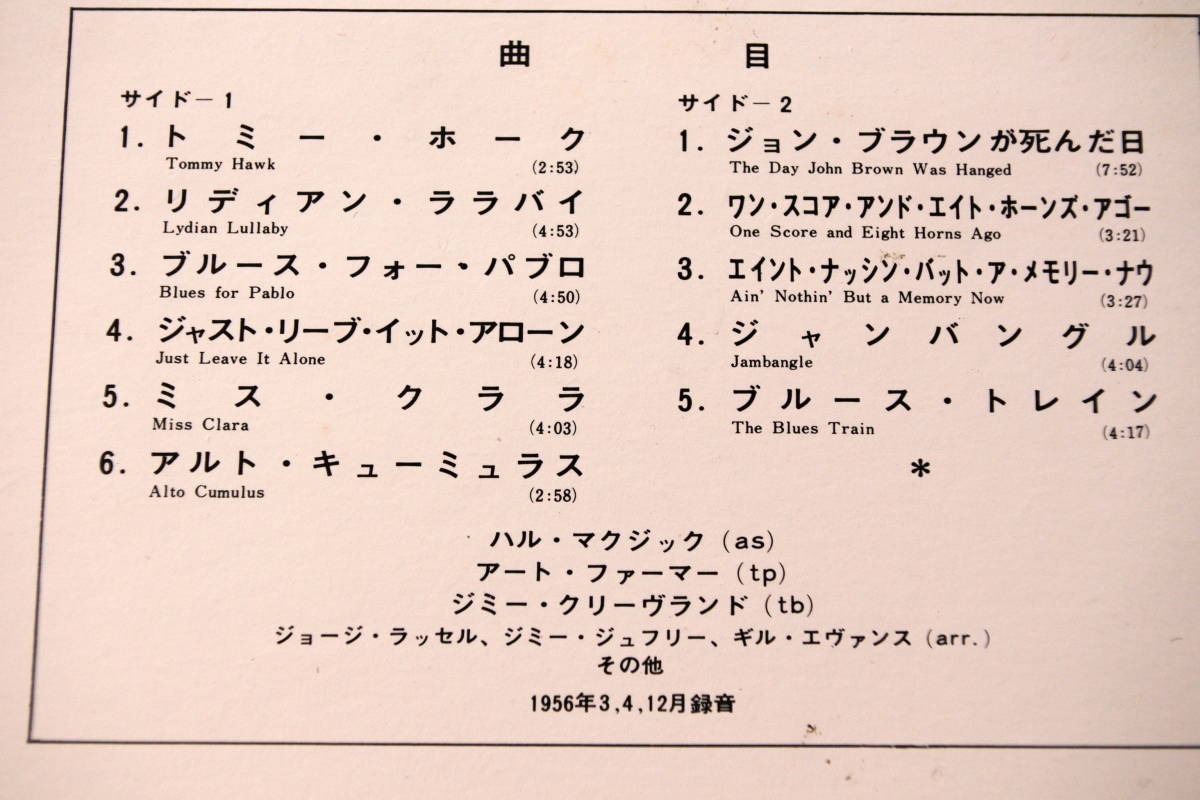 曲目
サイド－1
1. トミー・ホーク
Tommy Hawk (2:53)
2. リディアン・ララバイ
Lydian Lullaby (4:53)
3. ブルース・フォー・パブロ
Blues for Pablo (4:50)
4. ジャスト・リーブ・イット・アローン
Just Leave It Alone (4:18)
5. ミス・クララ
Miss Clara (4:03)
6. アルト・キューミュラス
Alto Cumulus (2:58)
サイド－2
1. ジョン・ブラウンが死んだ日
The Day John Brown Was Hanged (7:52)
2. ワン・スコア・アンド・エイト・ホーンズ・アゴー
One Score and Eight Horns Ago (3:21)
3. エイント・ナッシン・バット・ア・メモリー・ナウ
Ain' Nothin' But a Memory Now (3:27)
4. ジャンバングル
Jambangle (4:04)
5. ブルース・トレイン
The Blues Train (4:17)
*
ハル・マクジック (as)
アート・ファーマー (tp)
ジミー・クリーヴランド (tb)
ジョージ・ラッセル、ジミー・ジュフリー、ギル・エヴァンス (arr.)
その他
1956年3,4,12月録音